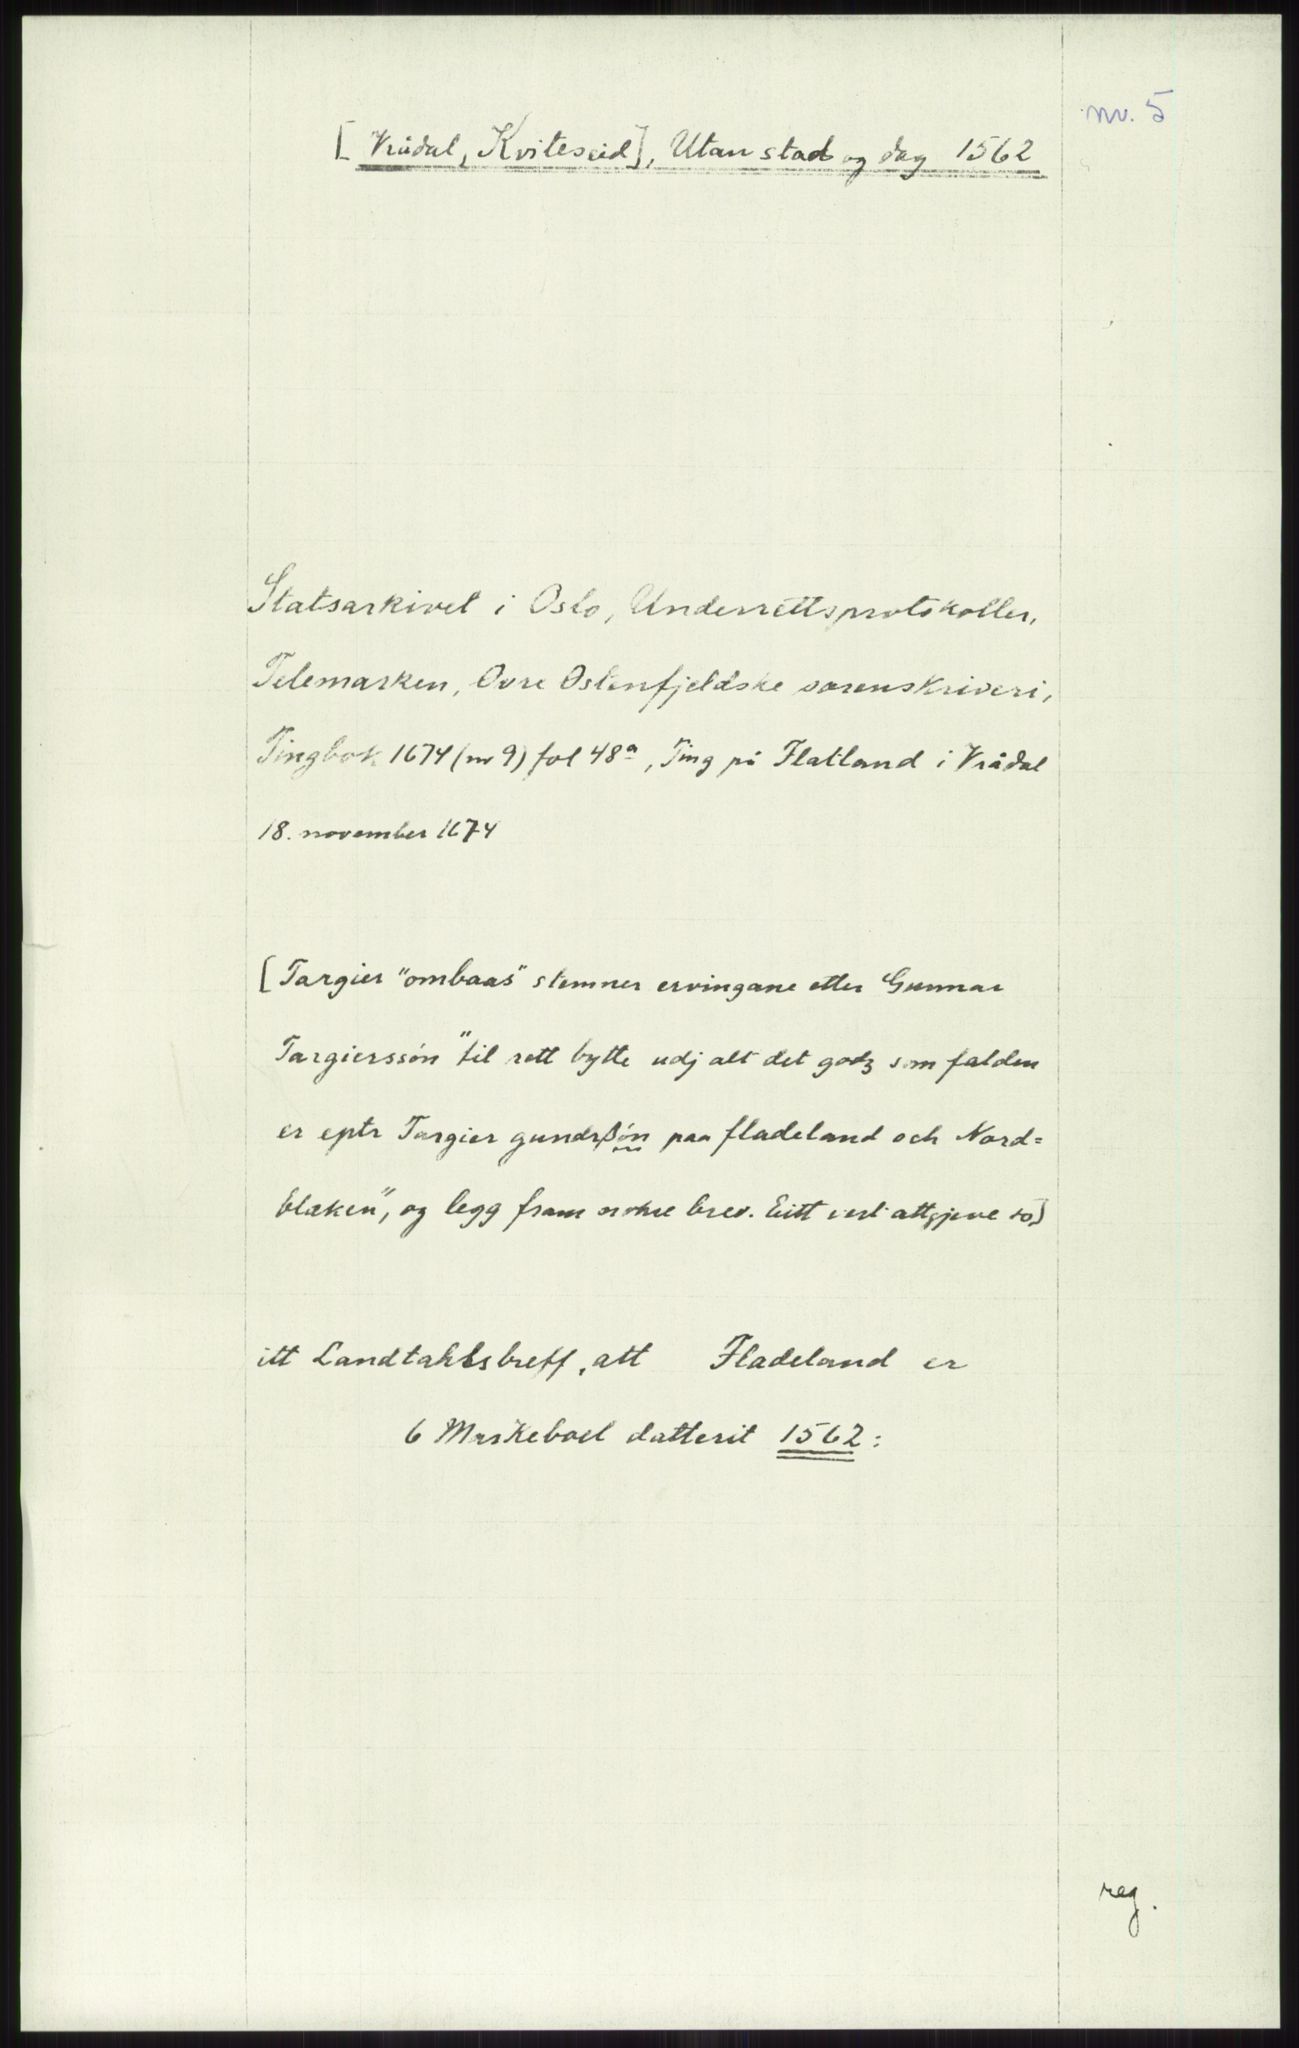 nr. 5
[Vrådal, Kviteseid], Utan stad og dag 1562
Statsarkivet i Oslo, Underrettsprotokoller,
Telemarken, Øvre Østenfjeldske sorenskriveri,
Tingbok 1674 (nr 9) fol 48a, Ting på Flatland i Vrådal
18. november 1674
[Targier "ombaas" stemner ervingane etter Gunnar
Targierssøn "til rett bytte udj alt det godz som falden
er eptr Targier gundrßøn paa fladeland och Nord=
blaken", og legg fram nokre brev. Eitt vert attgjeve so]
itt Landtahlsbreff, att Fladeland er
6 Markeboel datterit 1562:
reg.